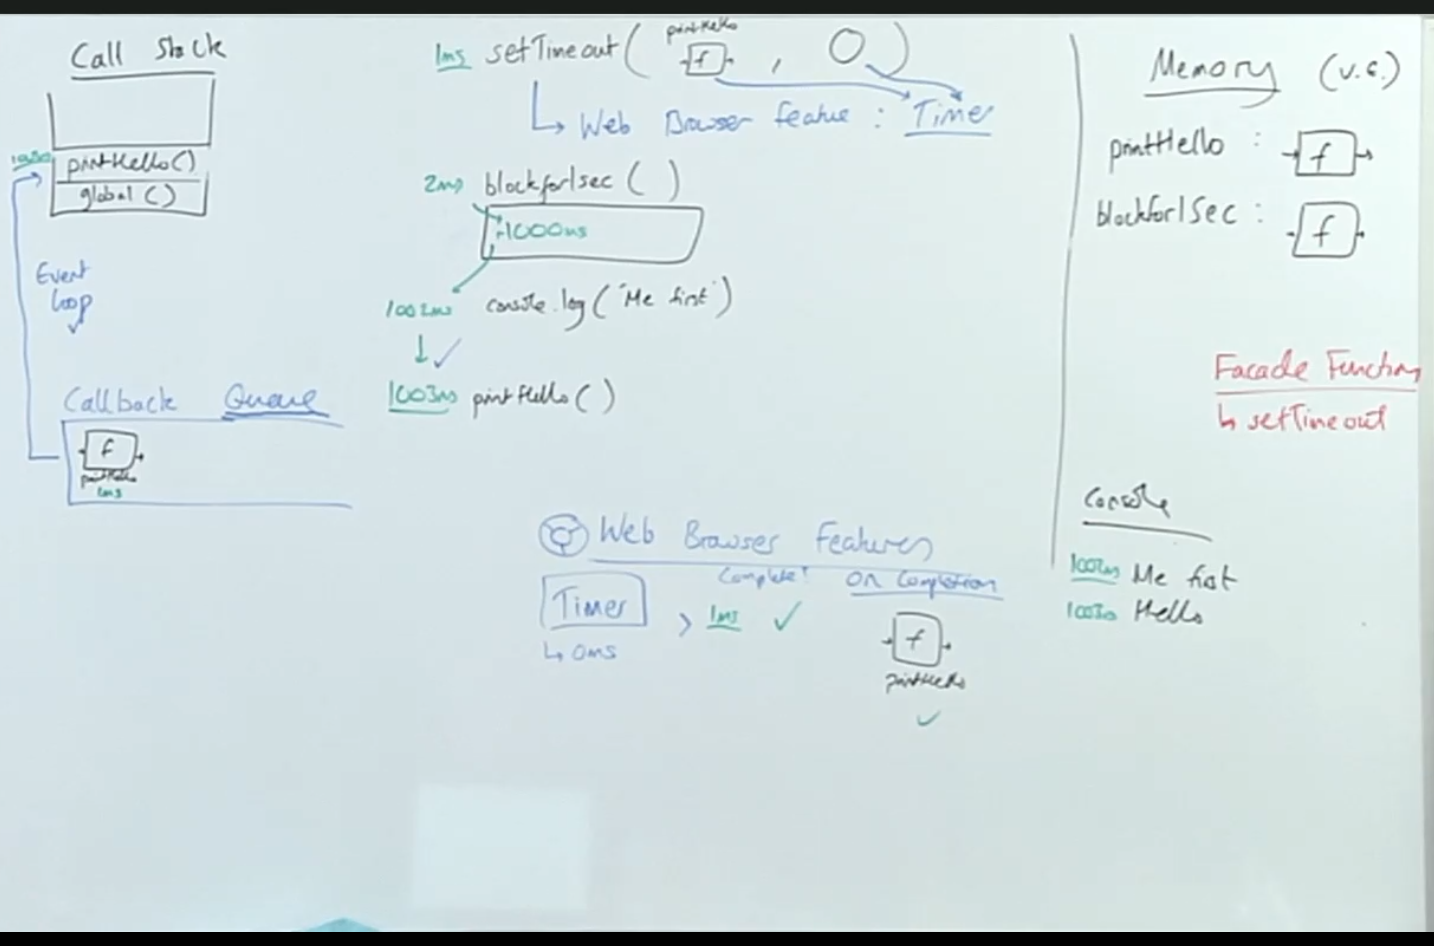 Call Stack
printHello()
global()
Event
loop
Callback Queue
f
printHello
1ms
printHello
1ms setTimeout( f , 0 )
↳ Web Browser feature : Timer
2ms blockfor1sec ( )
+1000ms
1002ms console.log("Me first")
↓ ✓
1003ms printHello()
Web Browser Features
Complete? On Completion
Timer > 1ms ✓ f
↳ 0ms
printHello
✓
Memory (v.e.)
printHello : f
blockfor1Sec : f
Facade Function
↳ setTimeout
Console
1002ms Me first
1003ms Hello